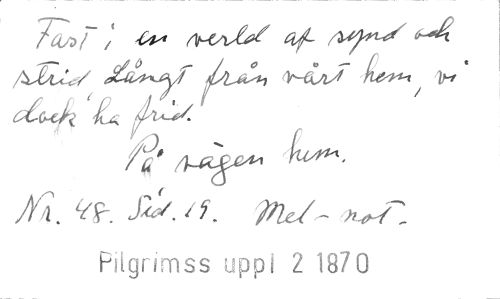 Fast i en verld af synd och
strid, Långt från vårt hem, vi
dock ha frid.
På vägen hem.
Nr. 48. Sid. 19. Mel-not.
Pilgrimss uppl 2 1870